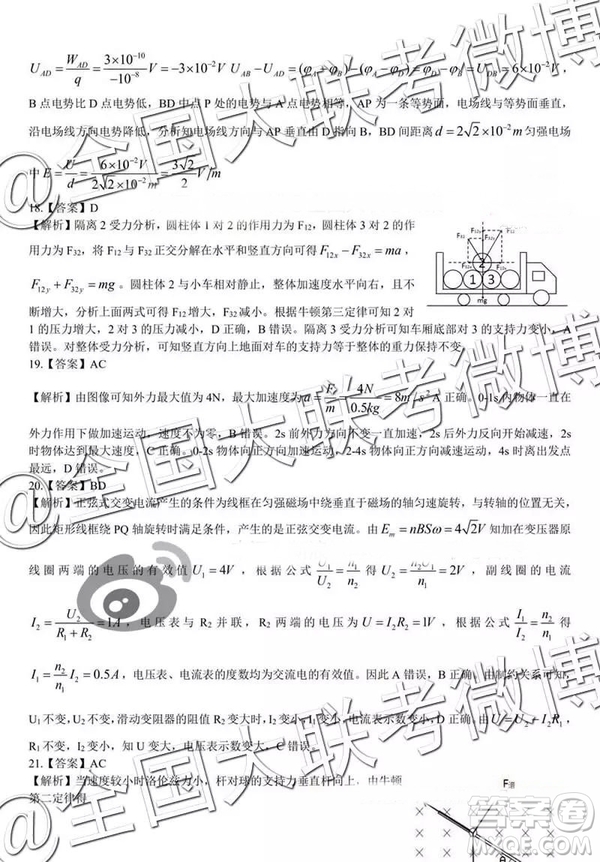 U_AD = W_AD/q = 3×10^-10/-10^-8 V = -3×10^-2 V U_AB - U_AD = (φ_A - φ_B) - (φ_A - φ_D) = φ_D - φ_B = U_DB = 6×10^-2 V,
B点电势比D点电势低,BD中点P处的电势与A点电势相等,AP为一条等势面,电场线与等势面垂直,
沿电场线方向电势降低,分析知电场线与AP垂直由D指向B,BD间距离d=2√2×10^-2 m匀强电场
中E = U/d = 6×10^-2 V/2√2×10^-2 m = 3√2/2 V/m
18.【答案】D
【解析】隔离2受力分析,圆柱体1对2的作用力为F12,圆柱体3对2的作用
力为F32,将F12与F32正交分解在水平和竖直方向可得F12x - F32x = ma,
F12y + F32y = mg。圆柱体与小车相对静止,整体加速度水平向右,且不
断增大,分析上面两式可得F12增大,F32减小。根据牛顿第三定律可知2对
1的压力增大,2对3的压力减小,D正确,B错误。隔离3受力分析可知车厢底部对3的支持力变小,A
错误。对整体受力分析可知竖直方向上地面对车的支持力等于整体的重力保持不变
F12y
F12
F32
F32y
F32x
F12x
2
1
3
mg
19.【答案】AC
【解析】由图像可知外力最大值为4N,最大加速度为a = F/m = 4N/0.5kg = 8m/s² A正确。0-1s内物体一直在
外力作用下做加速运动,速度不为零,B错误。2s前外力方向不变一直加速,2s后外力反向开始减速,2s
时物体达到最大速度,C正确。0-2s物体向正方向加速运动,2-4s物体向正方向减速运动,4s时离出发点
最远,D错误。
20.【答案】BD
【解析】正弦式交变电流产生的条件为线框在匀强磁场中绕垂直于磁场的轴匀速旋转,与转轴的位置无关,
因此矩形线框绕PQ轴旋转时满足条件,产生的是正弦交变电流。由E_m = nBSω = 4√2V知加在变压器原
线圈两端的电压的有效值U1=4V,根据公式U1/U2 = n1/n2得U2 = n2/n1 U1 = 2V,副线圈的电流
I2 = U2/(R1+R2) = 1A,电压表与R2并联,R2两端的电压为U = I2R2 = 1V,根据公式I1/I2 = n2/n1得
I1 = n2/n1 I2 = 0.5A,电压表、电流表的度数均为交流电的有效值。因为A错误,B正确。由制约关系可知,
U1不变,U2不变,滑动变阻器的阻值R2变大时,I2变小,I1变小,电流表示数变小,D正确。由U2=U+I2R1,
R1不变,I2变小,知U变大,电压表示数变大,C错误。
21.【答案】AC
【解析】当速度较小时洛伦兹力小,杆对球的支持力垂直杆向上,由牛顿
第二定律得
F洛
θ
@全国大联考微博
@全国大联考微博
@全国大联考微博
答案圈
MXQE.COM